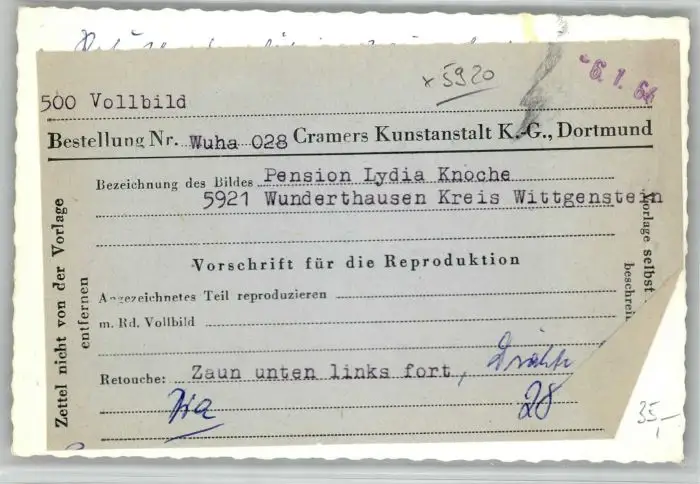 x 5920
6. 1. 64
500 Vollbild
Bestellung Nr. Wuha 028 Cramers Kunstanstalt K.-G., Dortmund
Bezeichnung des Bildes Pension Lydia Knoche
5921 Wunderthausen Kreis Wittgenstein
Vorschrift für die Reproduktion
Angezeichnetes Teil reproduzieren
m. Rd. Vollbild
Retouche: Zaun unten links fort, Drähte
28
35,-
Zettel nicht von der Vorlage
entfernen
Vorlage selbst
beschrei